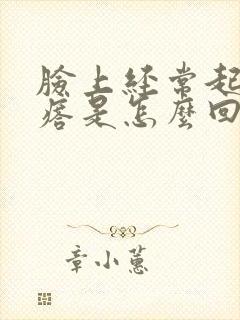 臉上經常起
痞是怎麼回
章小蕙